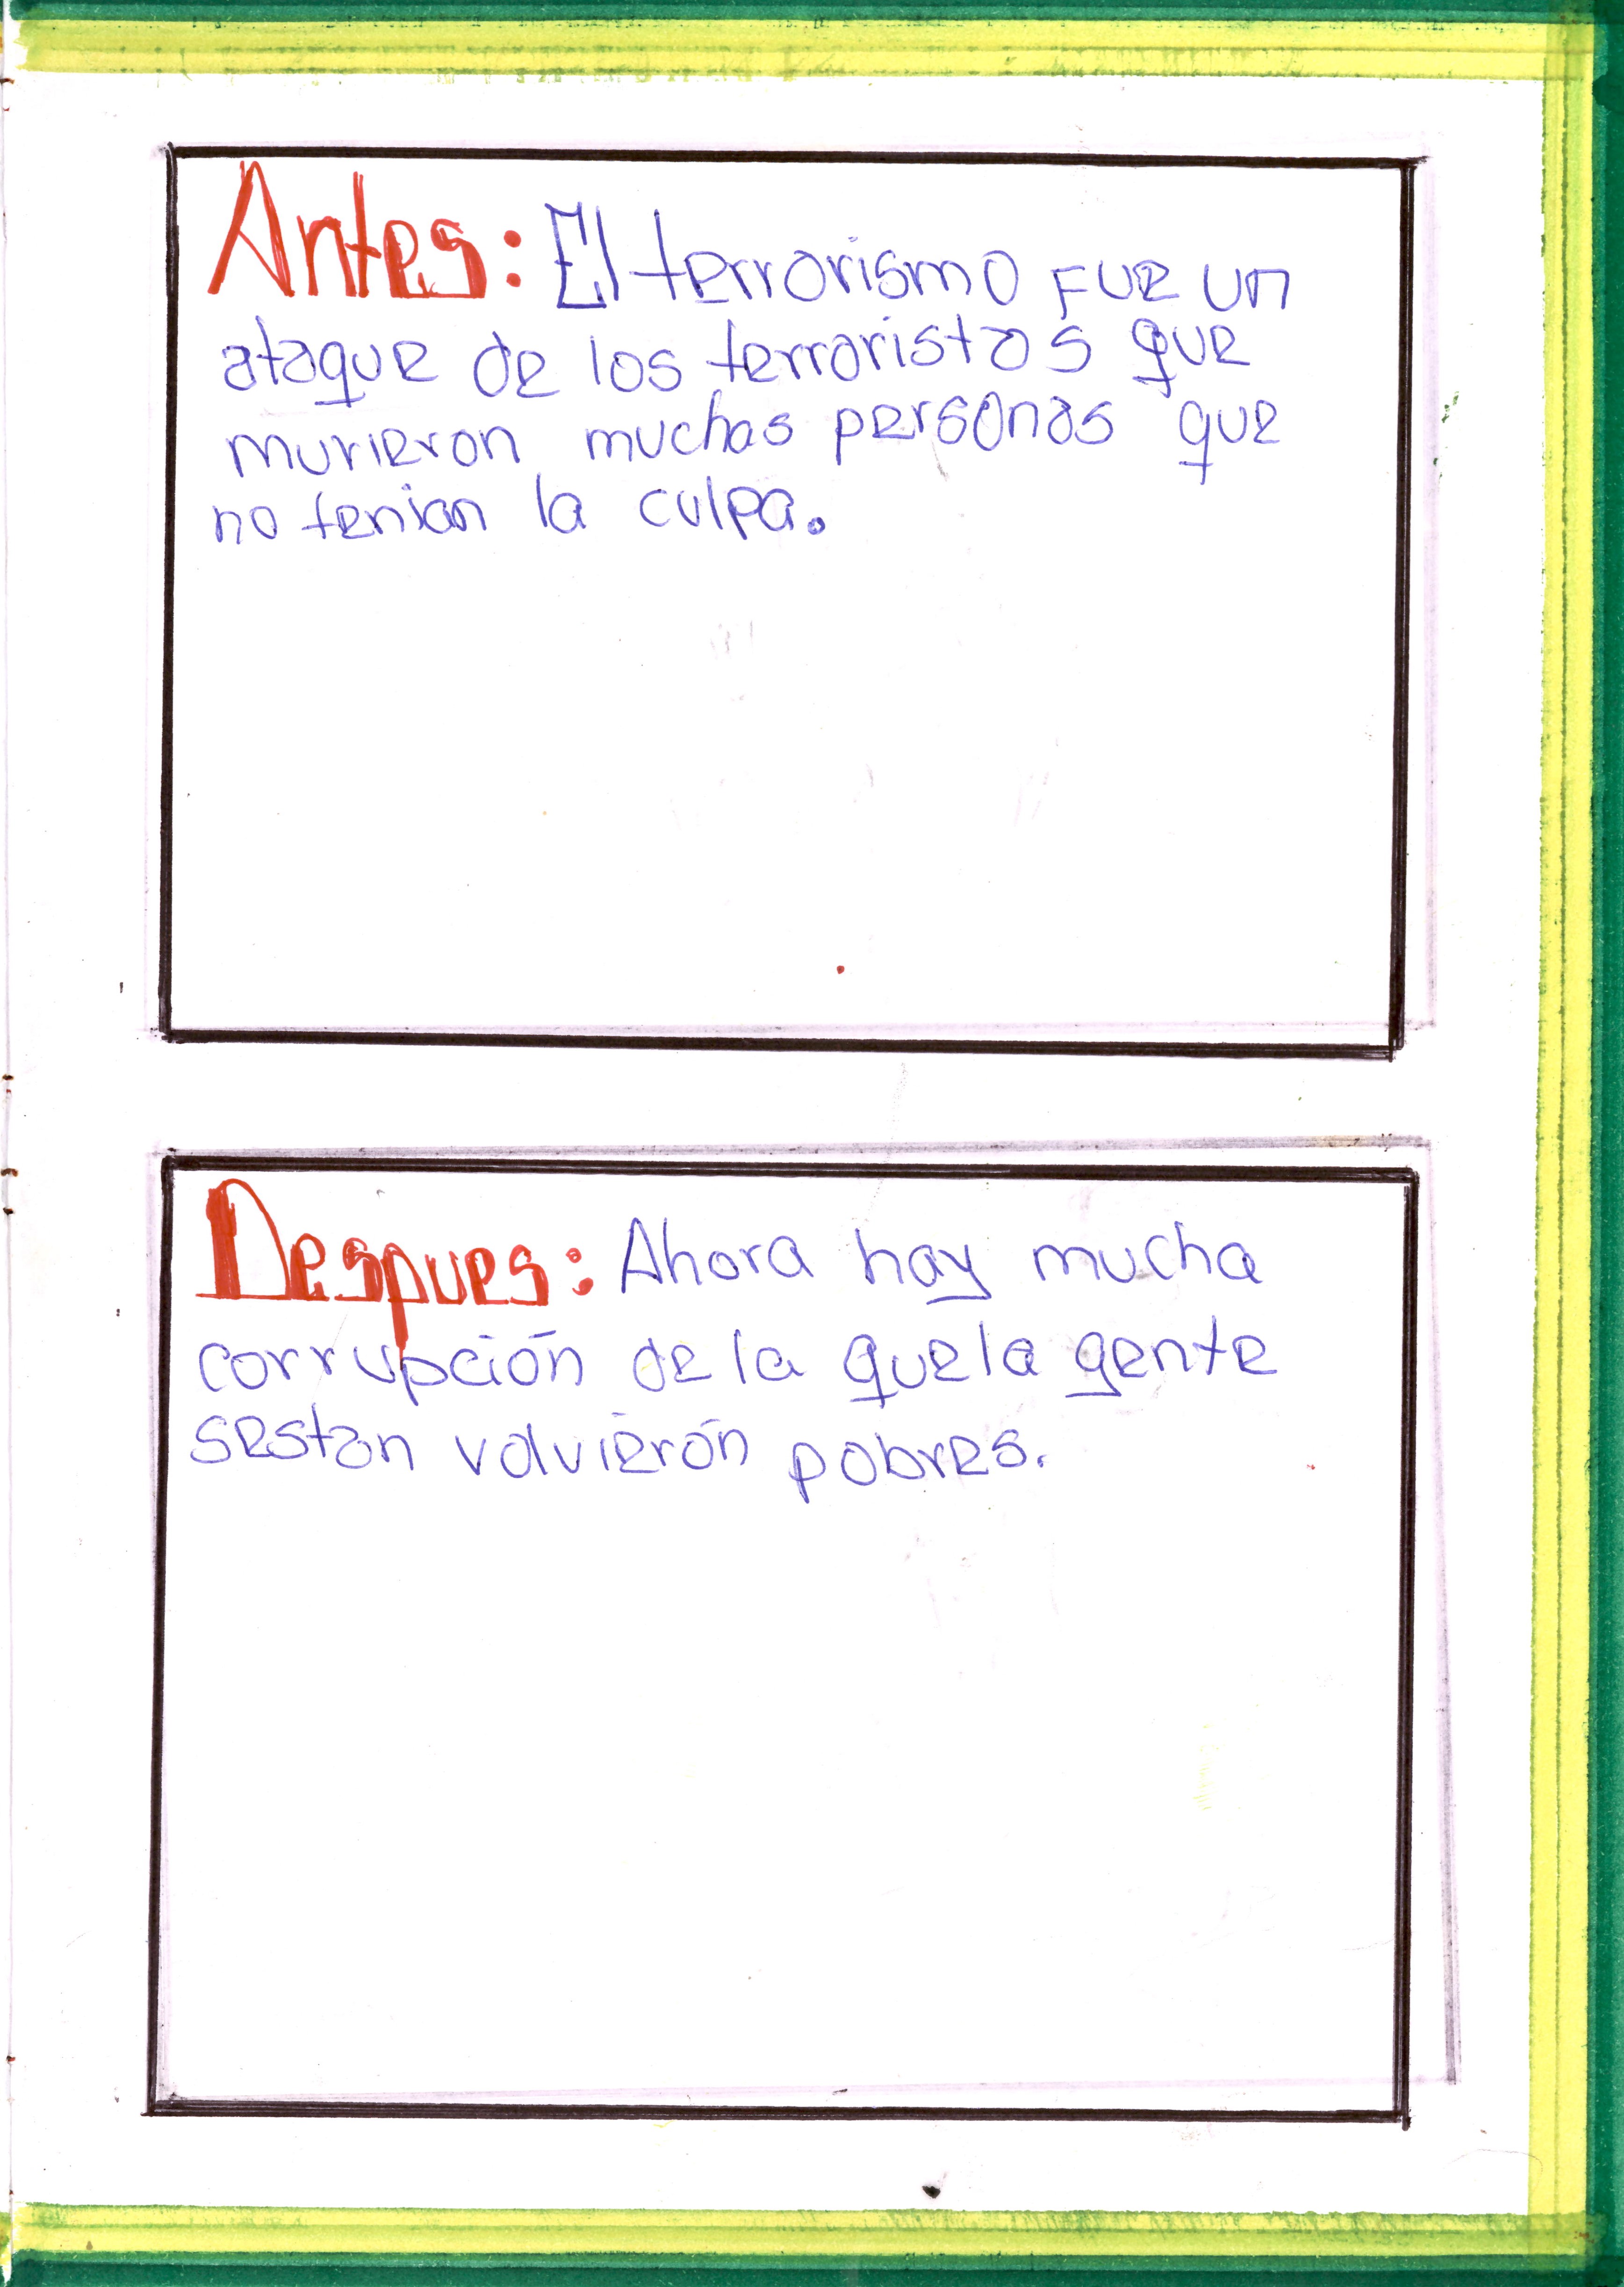 Antes: El terrorismo fue un
ataque de los terroristas que
murieron muchas personas que
no tenian la culpa.
Despues: Ahora hay mucha
corrupción de la que la gente
sestan volvierón pobres.